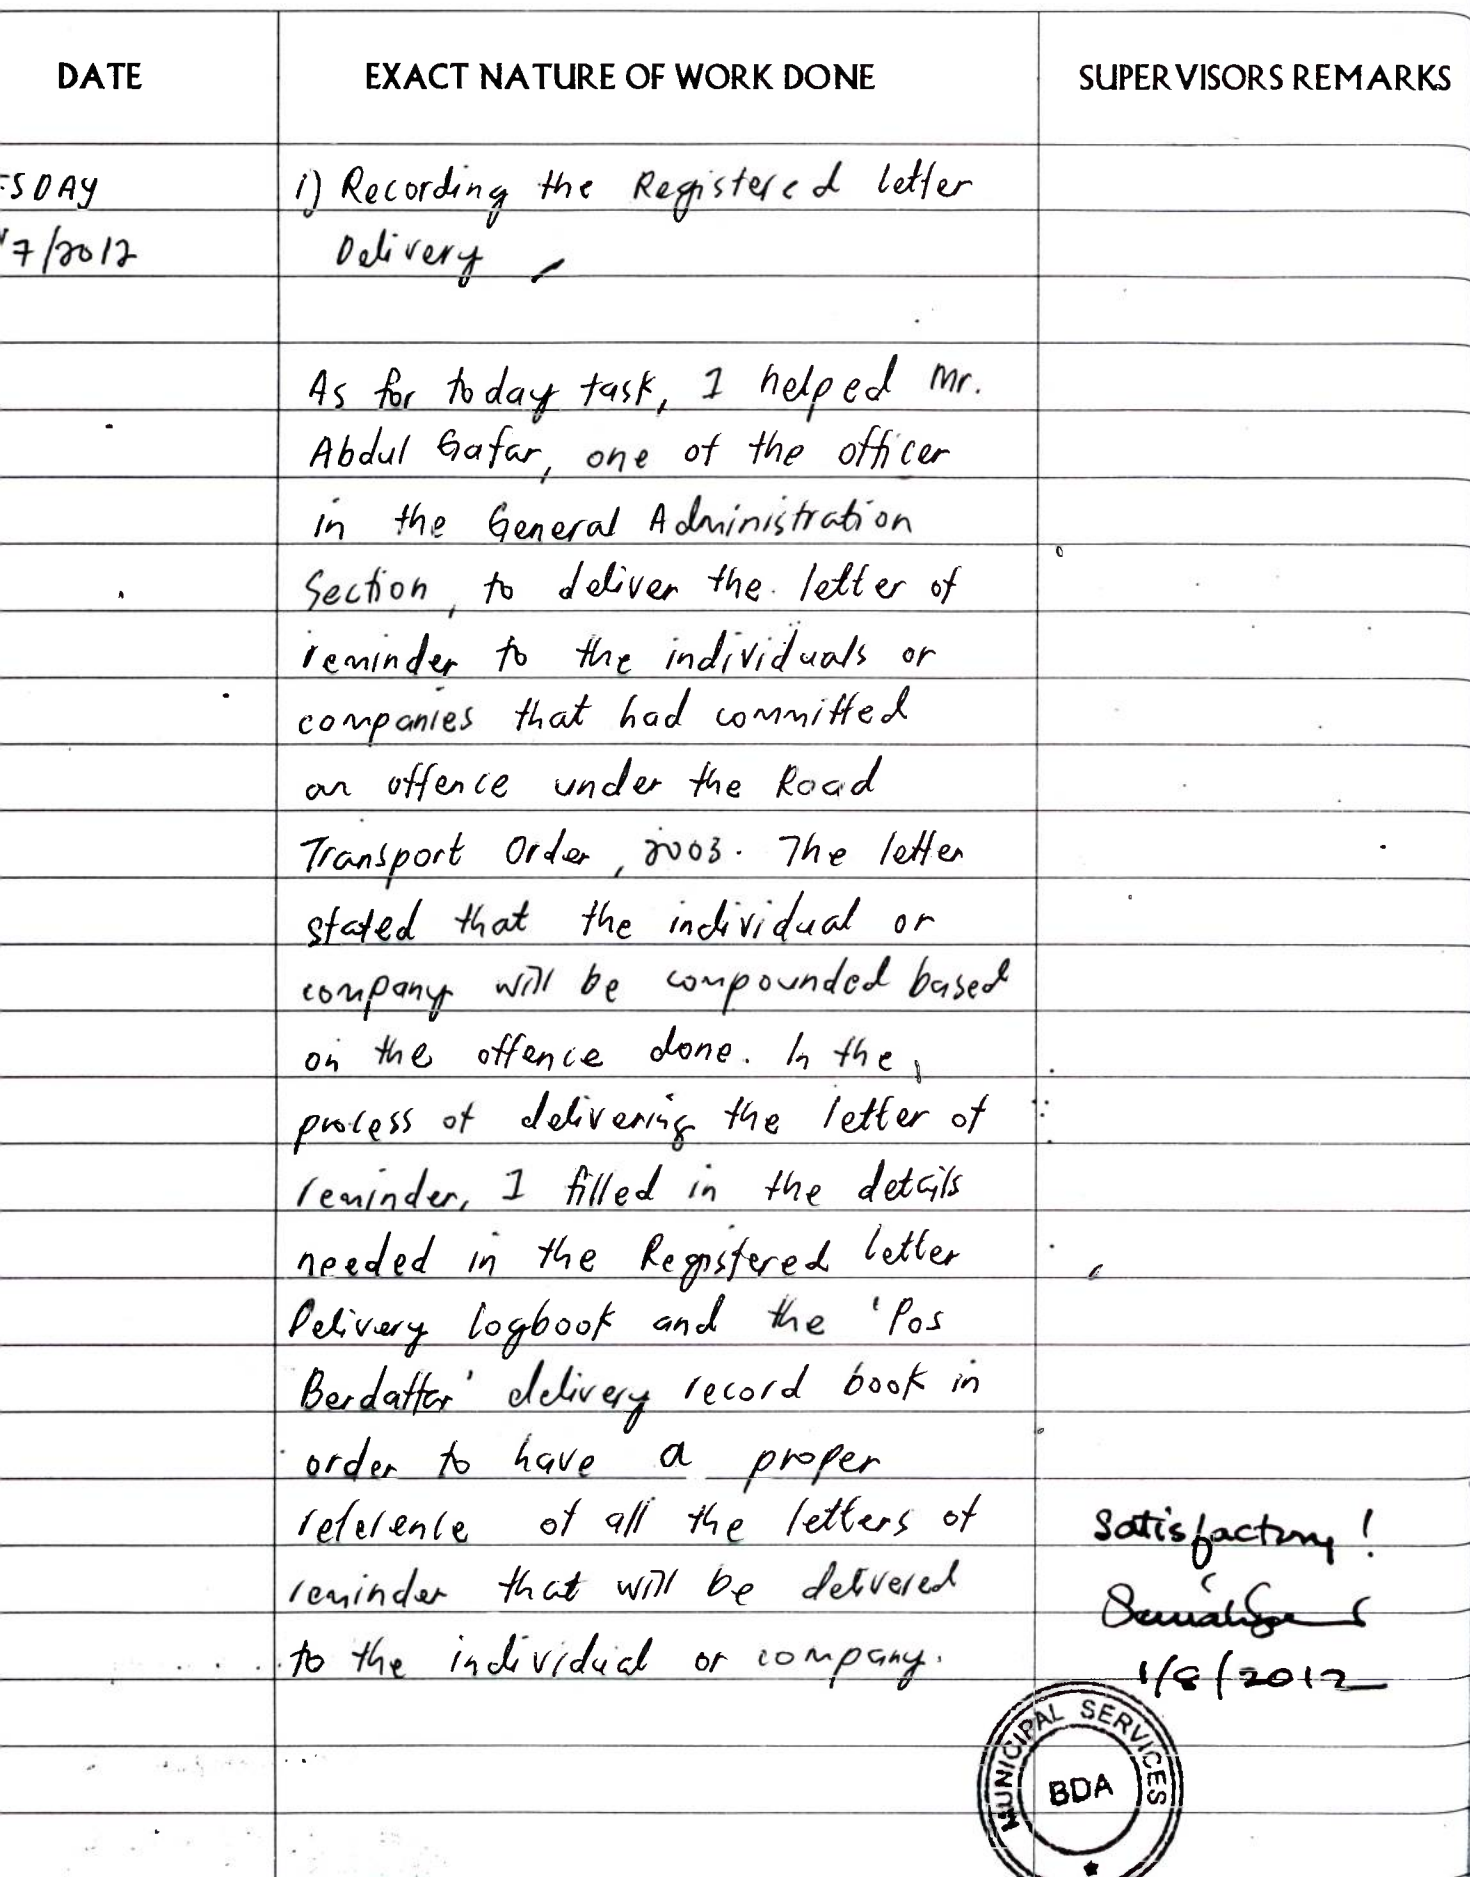 DATE EXACT NATURE OF WORK DONE SUPERVISORS REMARKS
ESDAY i) Recording the Registered letter
7/2012 Delivery
As for today task, I helped Mr.
Abdul Gafar, one of the officer
in the General Administration
Section, to deliver the letter of
reminder to the individuals or
companies that had committed
an offence under the Road
Transport Order, 2003. The letter
stated that the individual or
company will be compounded based
on the offence done. In the
process of delivering the letter of
reminder, I filled in the details
needed in the Registered letter
Delivery logbook and the 'Pos
Berdaftar' delivery record book in
order to have a proper
reference of all the letters of Satisfactory!
reminder that will be delivered
to the individual or company. 1/8/2012
MUNICIPAL SERVICES
BDA